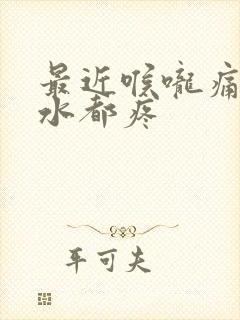 最近喉咙痛
水都疼
平可夫